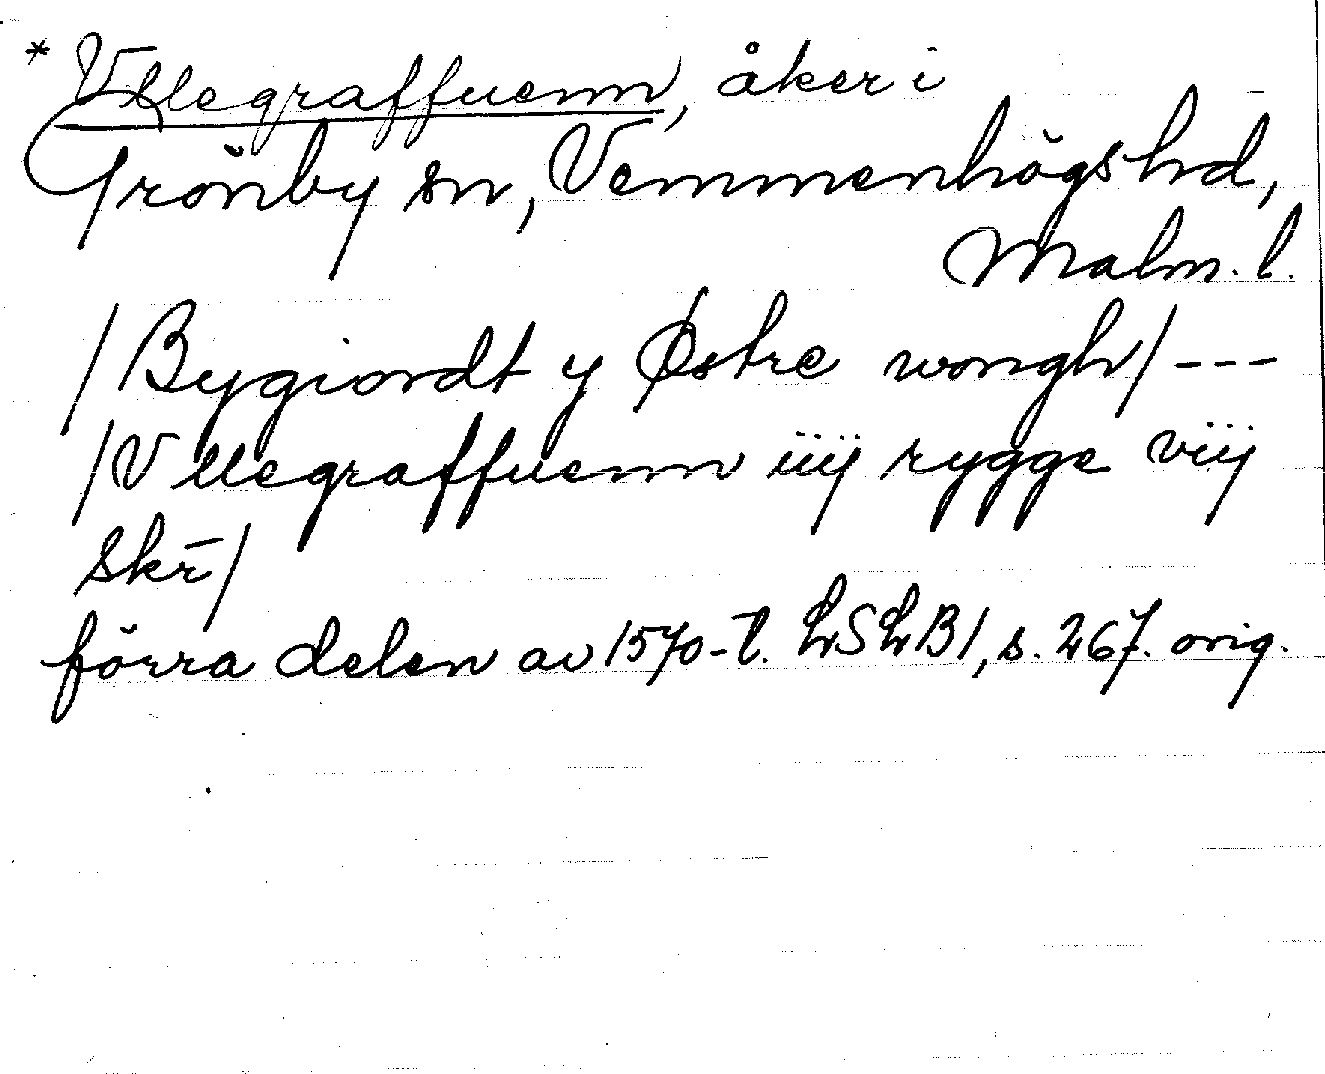 * Vllegraffuenn, åker i
Grönby sn, Vemmenhögs hd,
Malm. l.
/Bygiordt y Østre wongh/ ---
/Vllegraffuenn iiij rygge viij
skr̄/
förra delen av 1570-t. LSLB1, s. 267. orig.